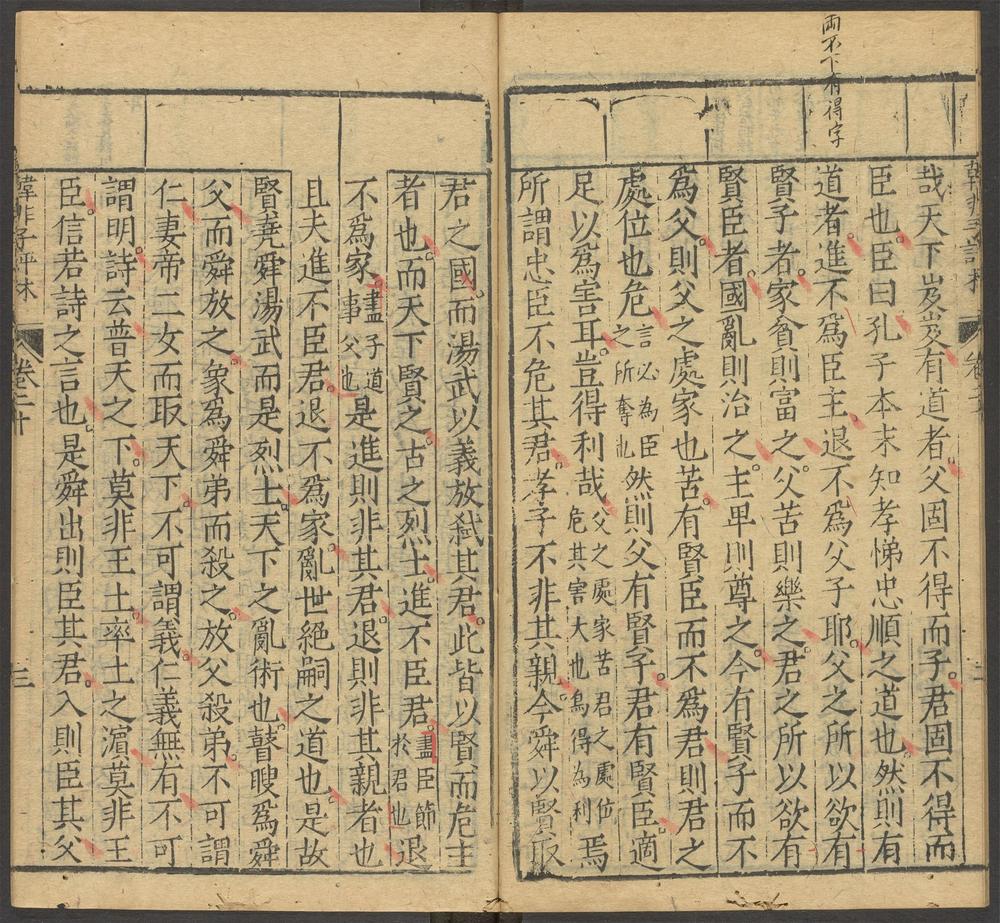 兩不下有得字
哉天下岌岌有道者父固不得而子君固不得而
臣也臣曰孔子本未知孝悌忠順之道也然則有
道者進不為臣主退不為父子耶父之所以欲有
賢子者家貧則富之父苦則樂之君之所以欲有
賢臣者國亂則治之主卑則尊之今有賢子而不
為父則父之處家也苦有賢臣而不為君則君之
處位也危言必為臣之所奪也然則父有賢子君有賢臣適
足以為害耳豈得利哉父之處家苦君之處位危其害大也烏得為利焉
所謂忠臣不危其君孝子不非其親今舜以賢取
君之國而湯武以義放弒其君此皆以賢而危主
者也而天下賢之古之烈士進不臣君盡臣節於君也退
不為家盡子道事父也是進則非其君退則非其親者也
且夫進不臣君退不為家亂世絕嗣之道也是故
賢堯舜湯武而是烈士天下之亂術也瞽瞍為舜
父而舜放之象為舜弟而殺之放父殺弟不可謂
仁妻帝二女而取天下不可謂義仁義無有不可
謂明詩云普天之下莫非王土率土之濵莫非王
臣信若詩之言也是舜出則臣其君入則臣其父
韓非子評林
卷二十
三